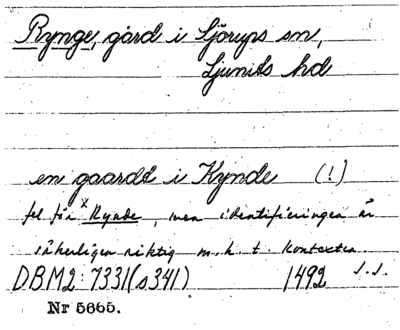 Rynge, gård i Sjörups sn,
Ljunits hd
en gaardt i Kynde (!)
fel för *Rynde, men identifieringen är
säkerligen riktig m.h.t. kontexten.
DBM2: 7331 (s 341) 1492 s.s.
Nr 5665.